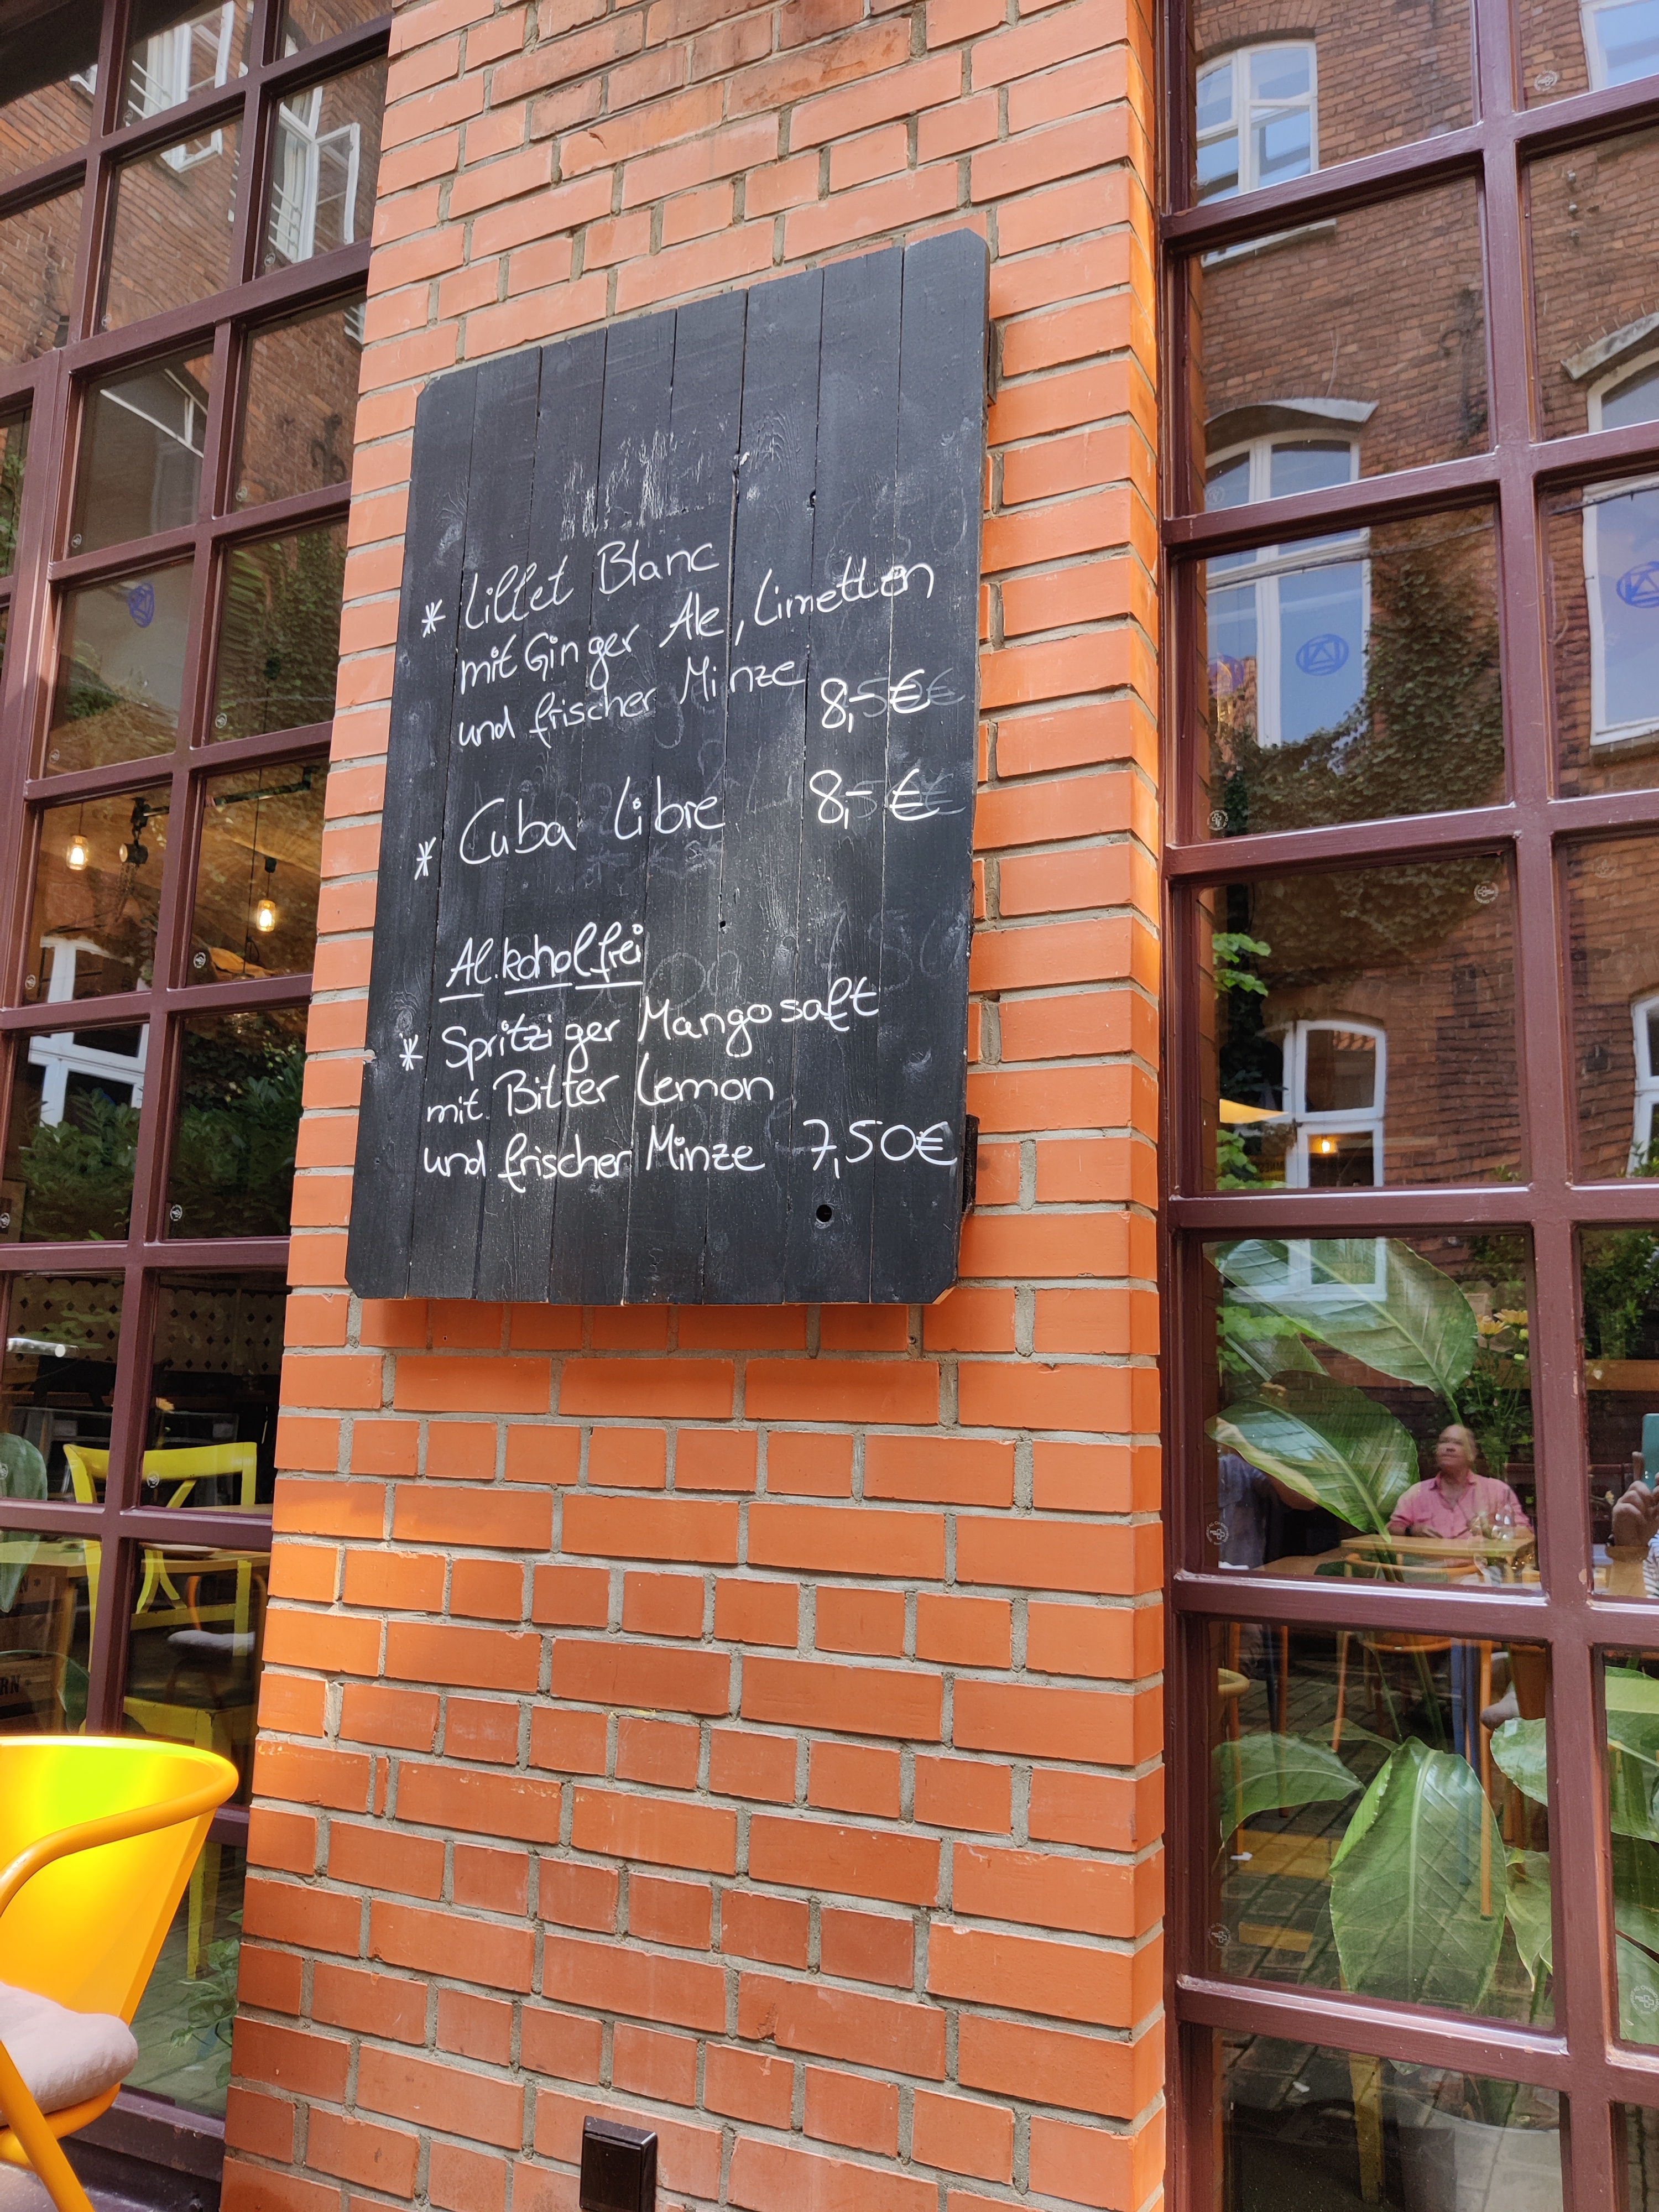 * Lillet Blanc
mit Ginger Ale, Limetten
und frischer Minze 8,- €
* Cuba Libre 8,- €
Alkoholfrei
* Spritziger Mangosaft
mit Bitter Lemon
und frischer Minze 7,50€